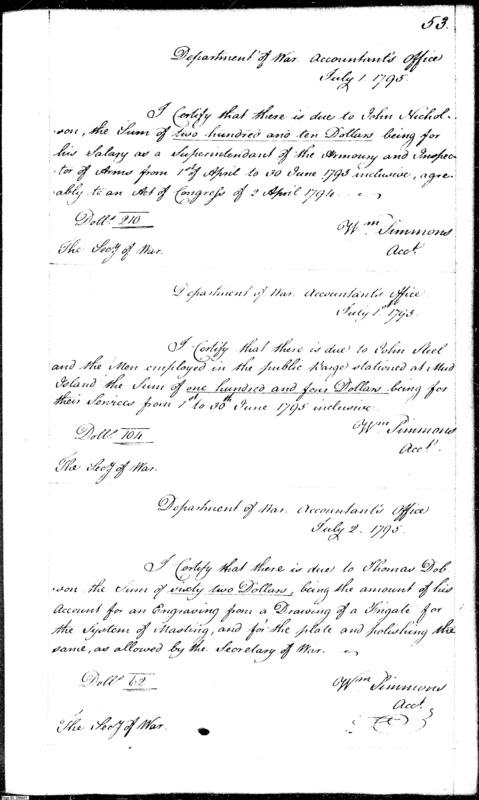 53.
Department of War. Accountant's Office
July 1 1795.
I Certify that there is due to John Nichol-
son, the Sum of two hundred and ten Dollars being for
his Salary as a Superintendant of the Armoury and Inspec-
tor of Arms from 1st of April to 30 June 1795 inclusive, agre-
ably to an Act of Congress of 2 April 1794.
Dolls. 210
Wm Simmons
Acct.
The Secy of War.
Department of War. Accountants Office.
July 1st 1795.
I Certify that there is due to John Steel
and the Men employed in the public Barge stationed at Mud
Island the Sum of one hundred and four Dollars being for
their Services from 1st to 30th June 1795 inclusive.
Dolls. 104
Wm Simmons
Acct.
The Secy of War.
Department of War. Accountant's Office
July 2. 1795.
I Certify that there is due to Thomas Dob
son the Sum of sixty two Dollars, being the amount of his
Account for an Engraving from a Drawing of a Frigate for
the System of Masting, and for the plate and polishing the
same, as allowed by the Secretary of War.
Dolls 62
Wm Simmons
Acct.
The Secy of War.